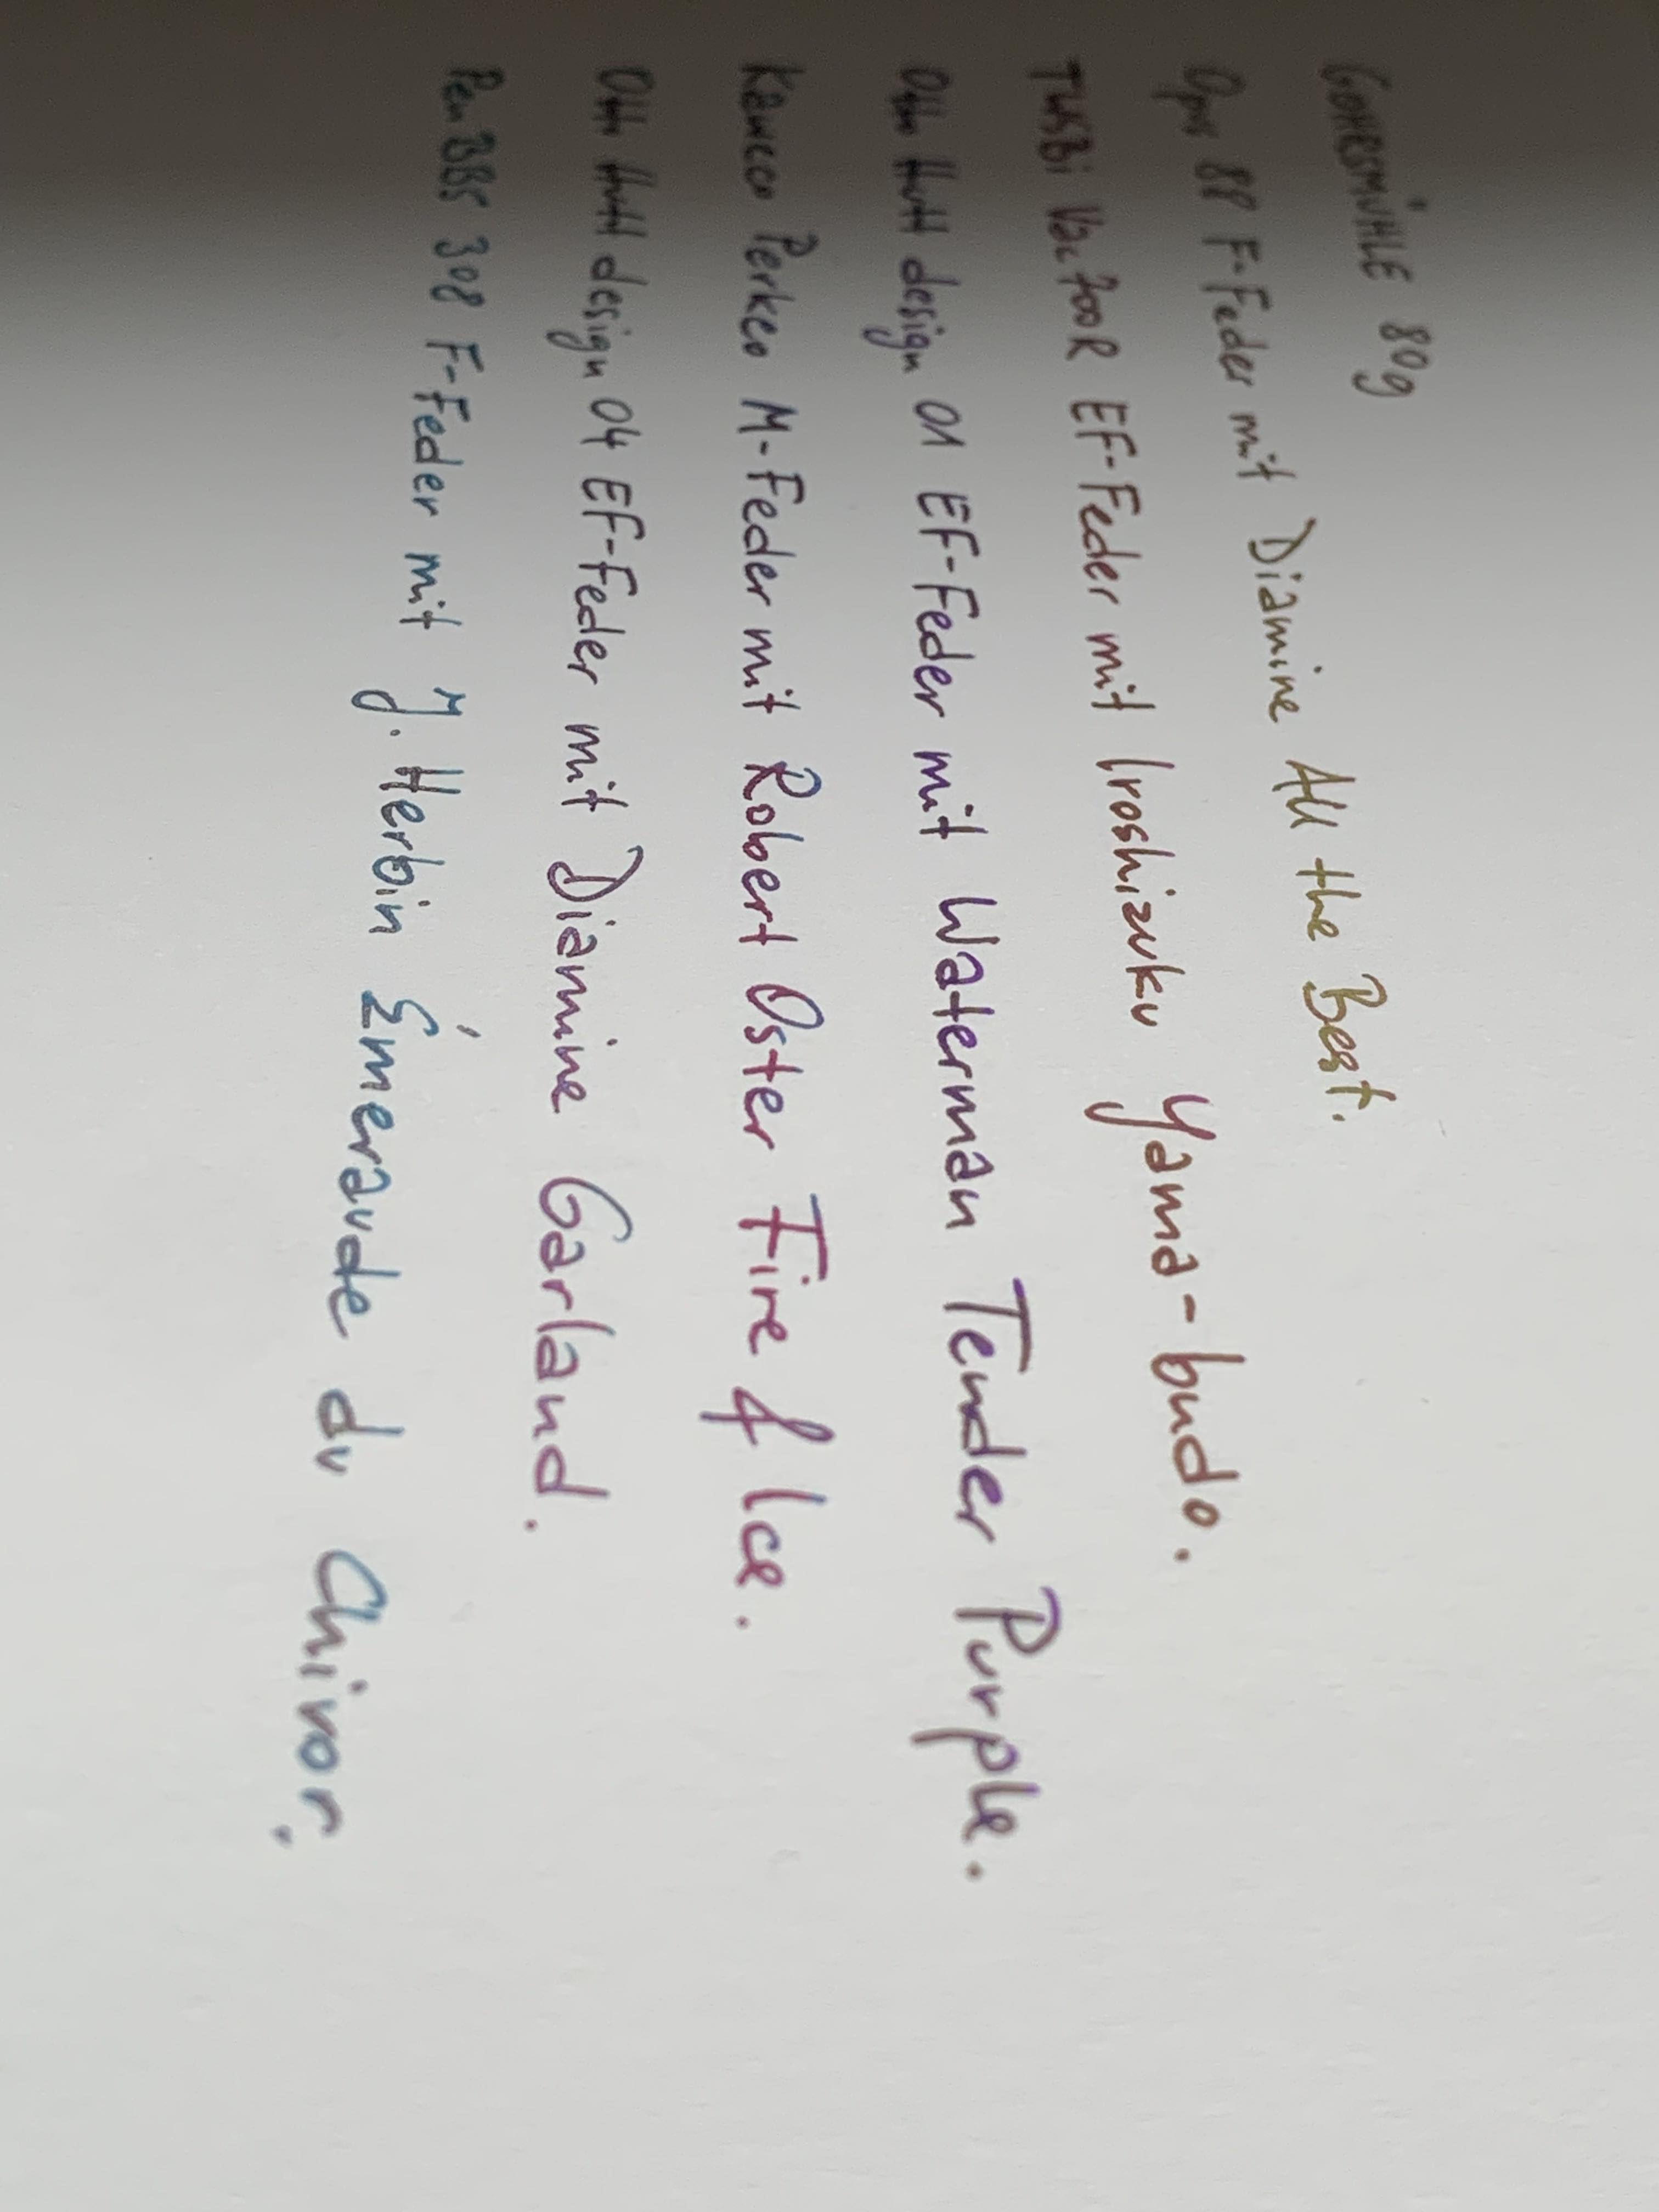 GOHRSMÜHLE 80g
Opus 88 F-Feder mit Diamine All the Best.
TWSBi Vac 700R EF-Feder mit Iroshizuku Yama-budo.
Otto Hutt design 01 EF-Feder mit Waterman Tender Purple.
Kaweco Perkeo M-Feder mit Robert Oster Fire & Ice.
Otto Hutt design 04 EF-Feder mit Diamine Garland.
PenBBS 308 F-Feder mit J. Herbin Émeraude du Chivor.